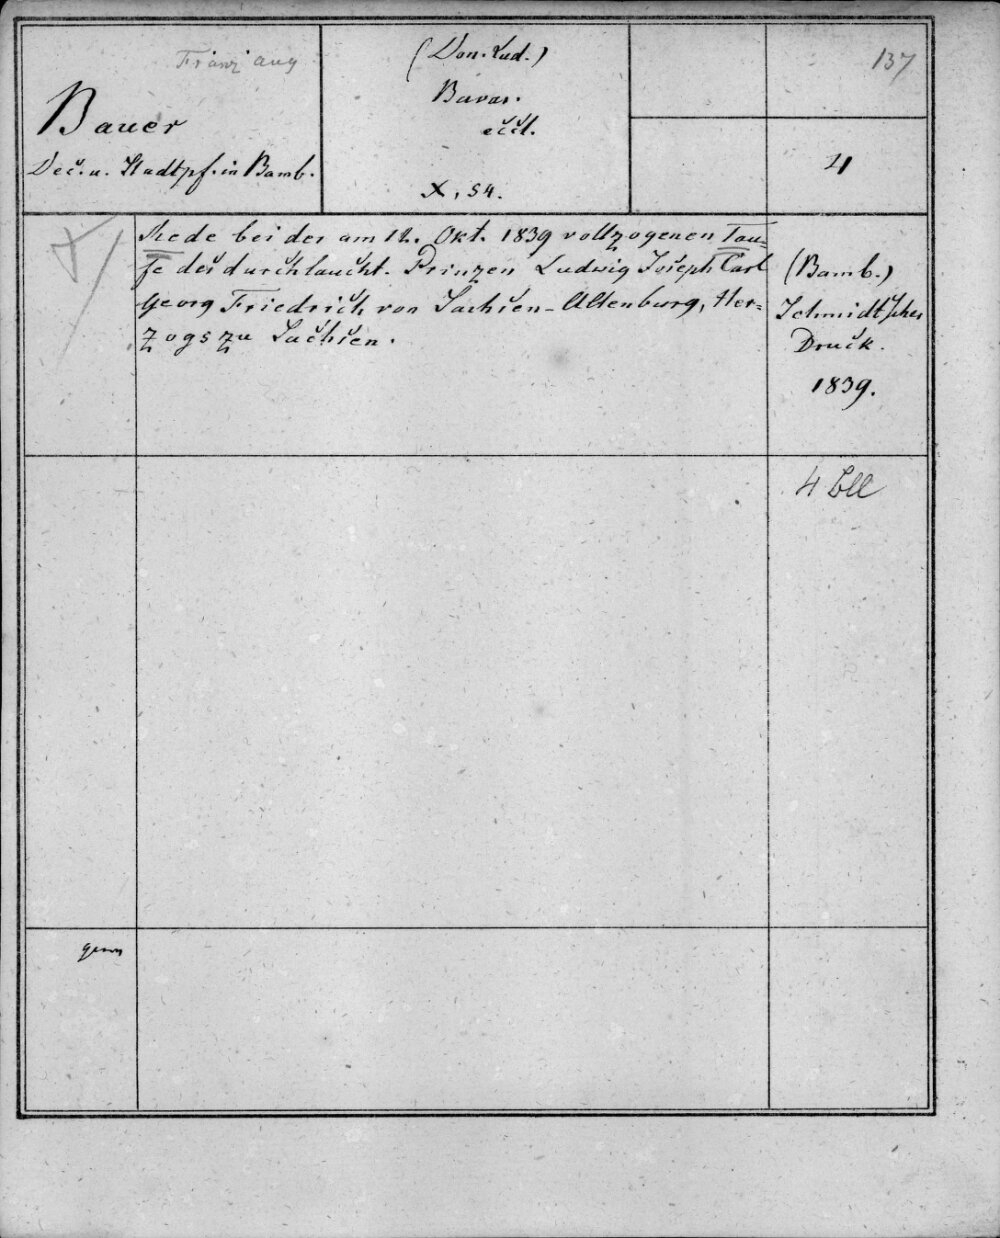 Franz Aug
Bauer
Dec. u. Stadtpf. in Bamb.
(Don. Lud.)
Bavar.
eccl.
X, 54.
137
4
Rede bei der am 12. Okt. 1839 vollzogenen Tau-
fe des durchlaucht. Prinzen Ludwig Joseph Carl
Georg Friedrich von Sachsen-Altenburg, Her-
zogs zu Sachsen.
(Bamb.)
Schmidt'scher
Druck.
1839.
4 Bll